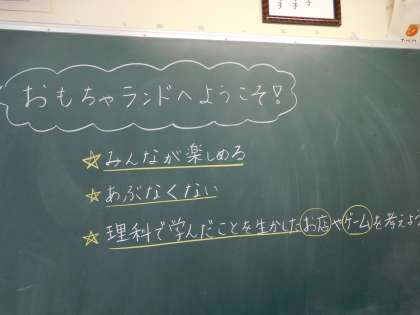 おもちゃランドへようこそ!
☆みんなが楽しめる
☆あぶなくない
☆理科で学んだことを生かしたお店やゲームを考えよう